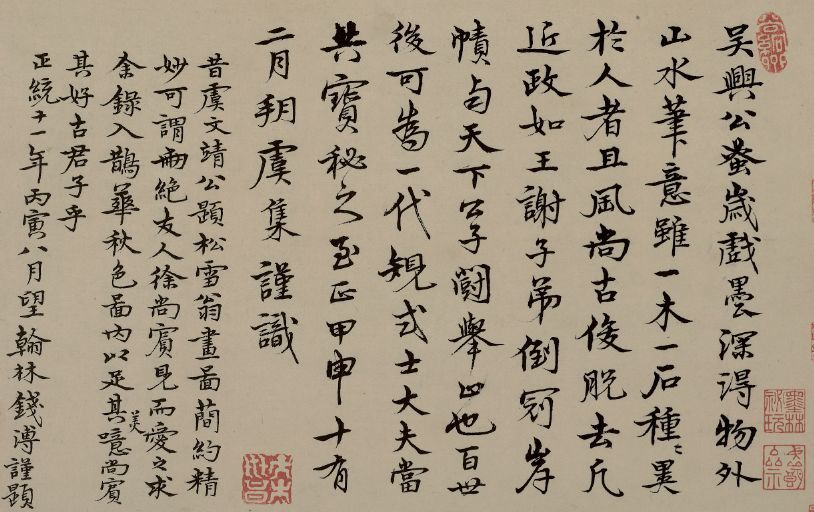 吴興公蚤歲戲墨深淂物外
山水筆意雖一木一石種〻異
於人者且風尚古俊脱去凡
近政如王謝子弟倒冠岸
幘与天下公子鬪舉止也百世
後可為一代規式士大夫當
共寶秘之至正甲申十有
二月朔虞集謹識
昔虞文靖公題松雪翁畫啚蕳約精
妙可謂兩絶友人徐尚賓見而愛之求
余錄入鵲華秋色啚内以足其美噫尚賓
其好古君子乎
正統十一年丙寅八月望翰林錢溥謹題
墨林
祕玩